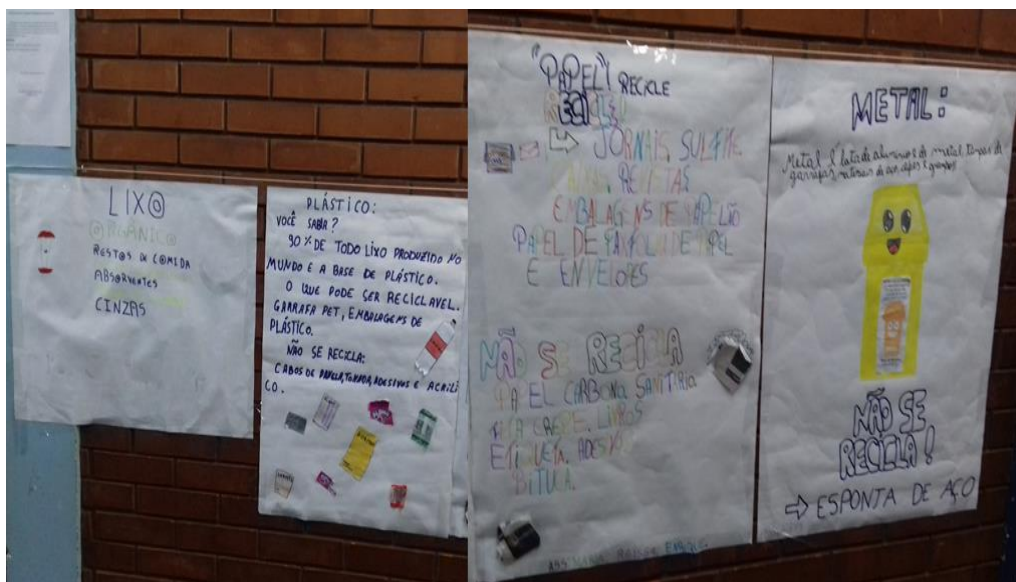 LIXO
ORGÂNICO
RESTOS DE COMIDA
ABSORVENTES
CINZAS
PLÁSTICO:
VOCÊ SABIA?
90% DE TODO LIXO PRODUZIDO NO
MUNDO É A BASE DE PLÁSTICO.
O QUE PODE SER RECICLAVEL.
GARRAFA PET, EMBALAGENS DE
PLÁSTICO.
NÃO SE RECICLA:
CABOS DE PANELA, TOMADA, ADESIVOS E ACRILI
CO.
"PAPEL" RECICLE
RECICLE!
JORNAIS, SULFITE
REVISTAS
EMBALAGENS DE PAPELÃO
PAPEL DE
E ENVELOPES
NÃO SE RECICLA
PAPEL CARBONO, SANITARIO
FITA CREPE, LIVROS
ETIQUETA ADESIVA
BITUCA
METAL:
Metal é lata de aluminio e de metal, tampas de
garrafas, materiais de aço, clipes e grampos
NÃO SE
RECICLA!
ESPONTA DE AÇO